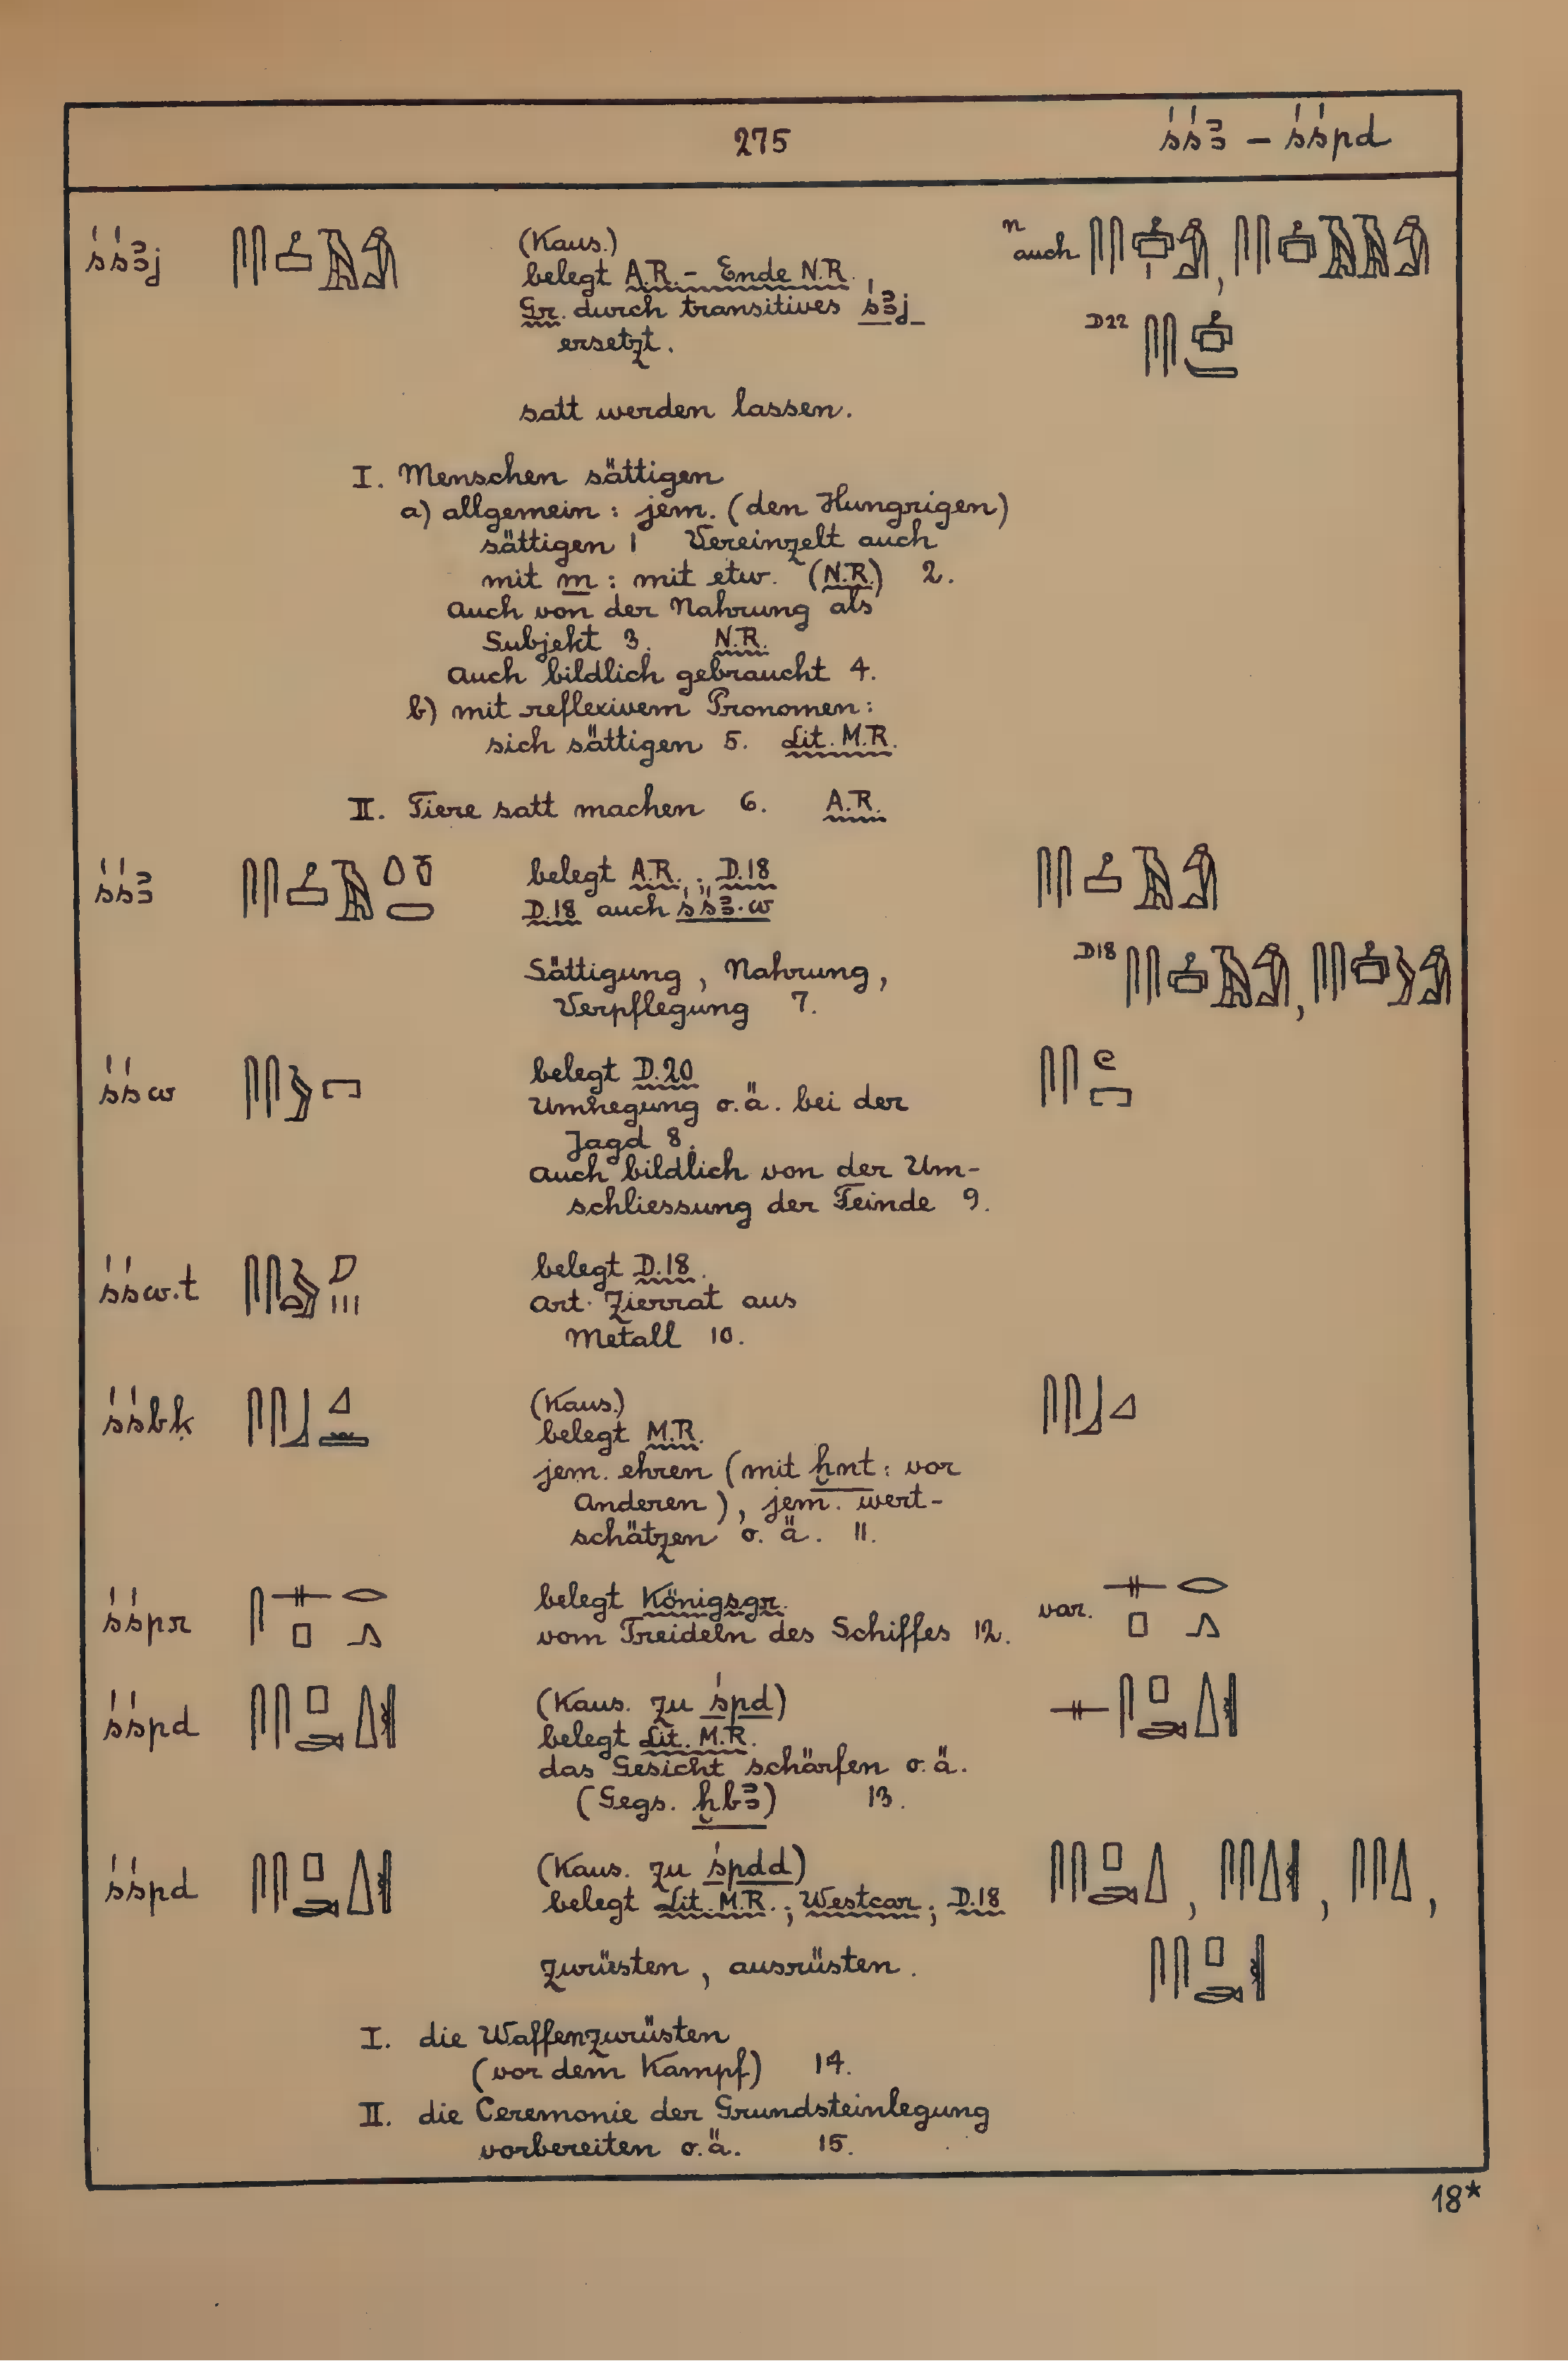 275 śśꜣ – śśpd
śśꜣj (Kaus.) n auch
belegt A.R. – Ende N.R.
Gr. durch transitives śꜣj D22
ersetzt.
satt werden lassen.
I. Menschen sättigen
a) allgemein : jem. (den Hungrigen)
sättigen 1 Vereinzelt auch
mit m : mit etw. (N.R.) 2.
Auch von der Nahrung als
Subjekt 3. N.R.
Auch bildlich gebraucht 4.
b) mit reflexivem Pronomen :
sich sättigen 5. Lit. M.R.
II. Tiere satt machen 6. A.R.
śśꜣ belegt A.R. ; D.18
D.18 auch śśꜣ.w
D18
Sättigung , Nahrung ,
Verpflegung 7.
śśw belegt D.20
Umhegung o.ä. bei der
Jagd 8.
Auch bildlich von der Um-
schliessung der Feinde 9.
śśw.t belegt D.18.
Art Zierrat aus
Metall 10.
śśbḳ (Kaus.)
belegt M.R.
jem. ehren (mit ḫnt : vor
Anderen) , jem. wert-
schätzen o. ä. 11.
śśpr belegt Königsgr. var.
vom Treideln des Schiffes 12.
śśpd (Kaus. zu śpd)
belegt Lit. M.R.
das Gesicht schärfen o.ä.
(Gegs. ḫbꜣ) 13.
śśpd (Kaus. zu śpdd) , , ,
belegt Lit. M.R. ; Westcar ; D.18
zurüsten , ausrüsten .
I. die Waffen zurüsten
(vor dem Kampf) 14.
II. die Ceremonie der Grundsteinlegung
vorbereiten o.ä. 15.
18*